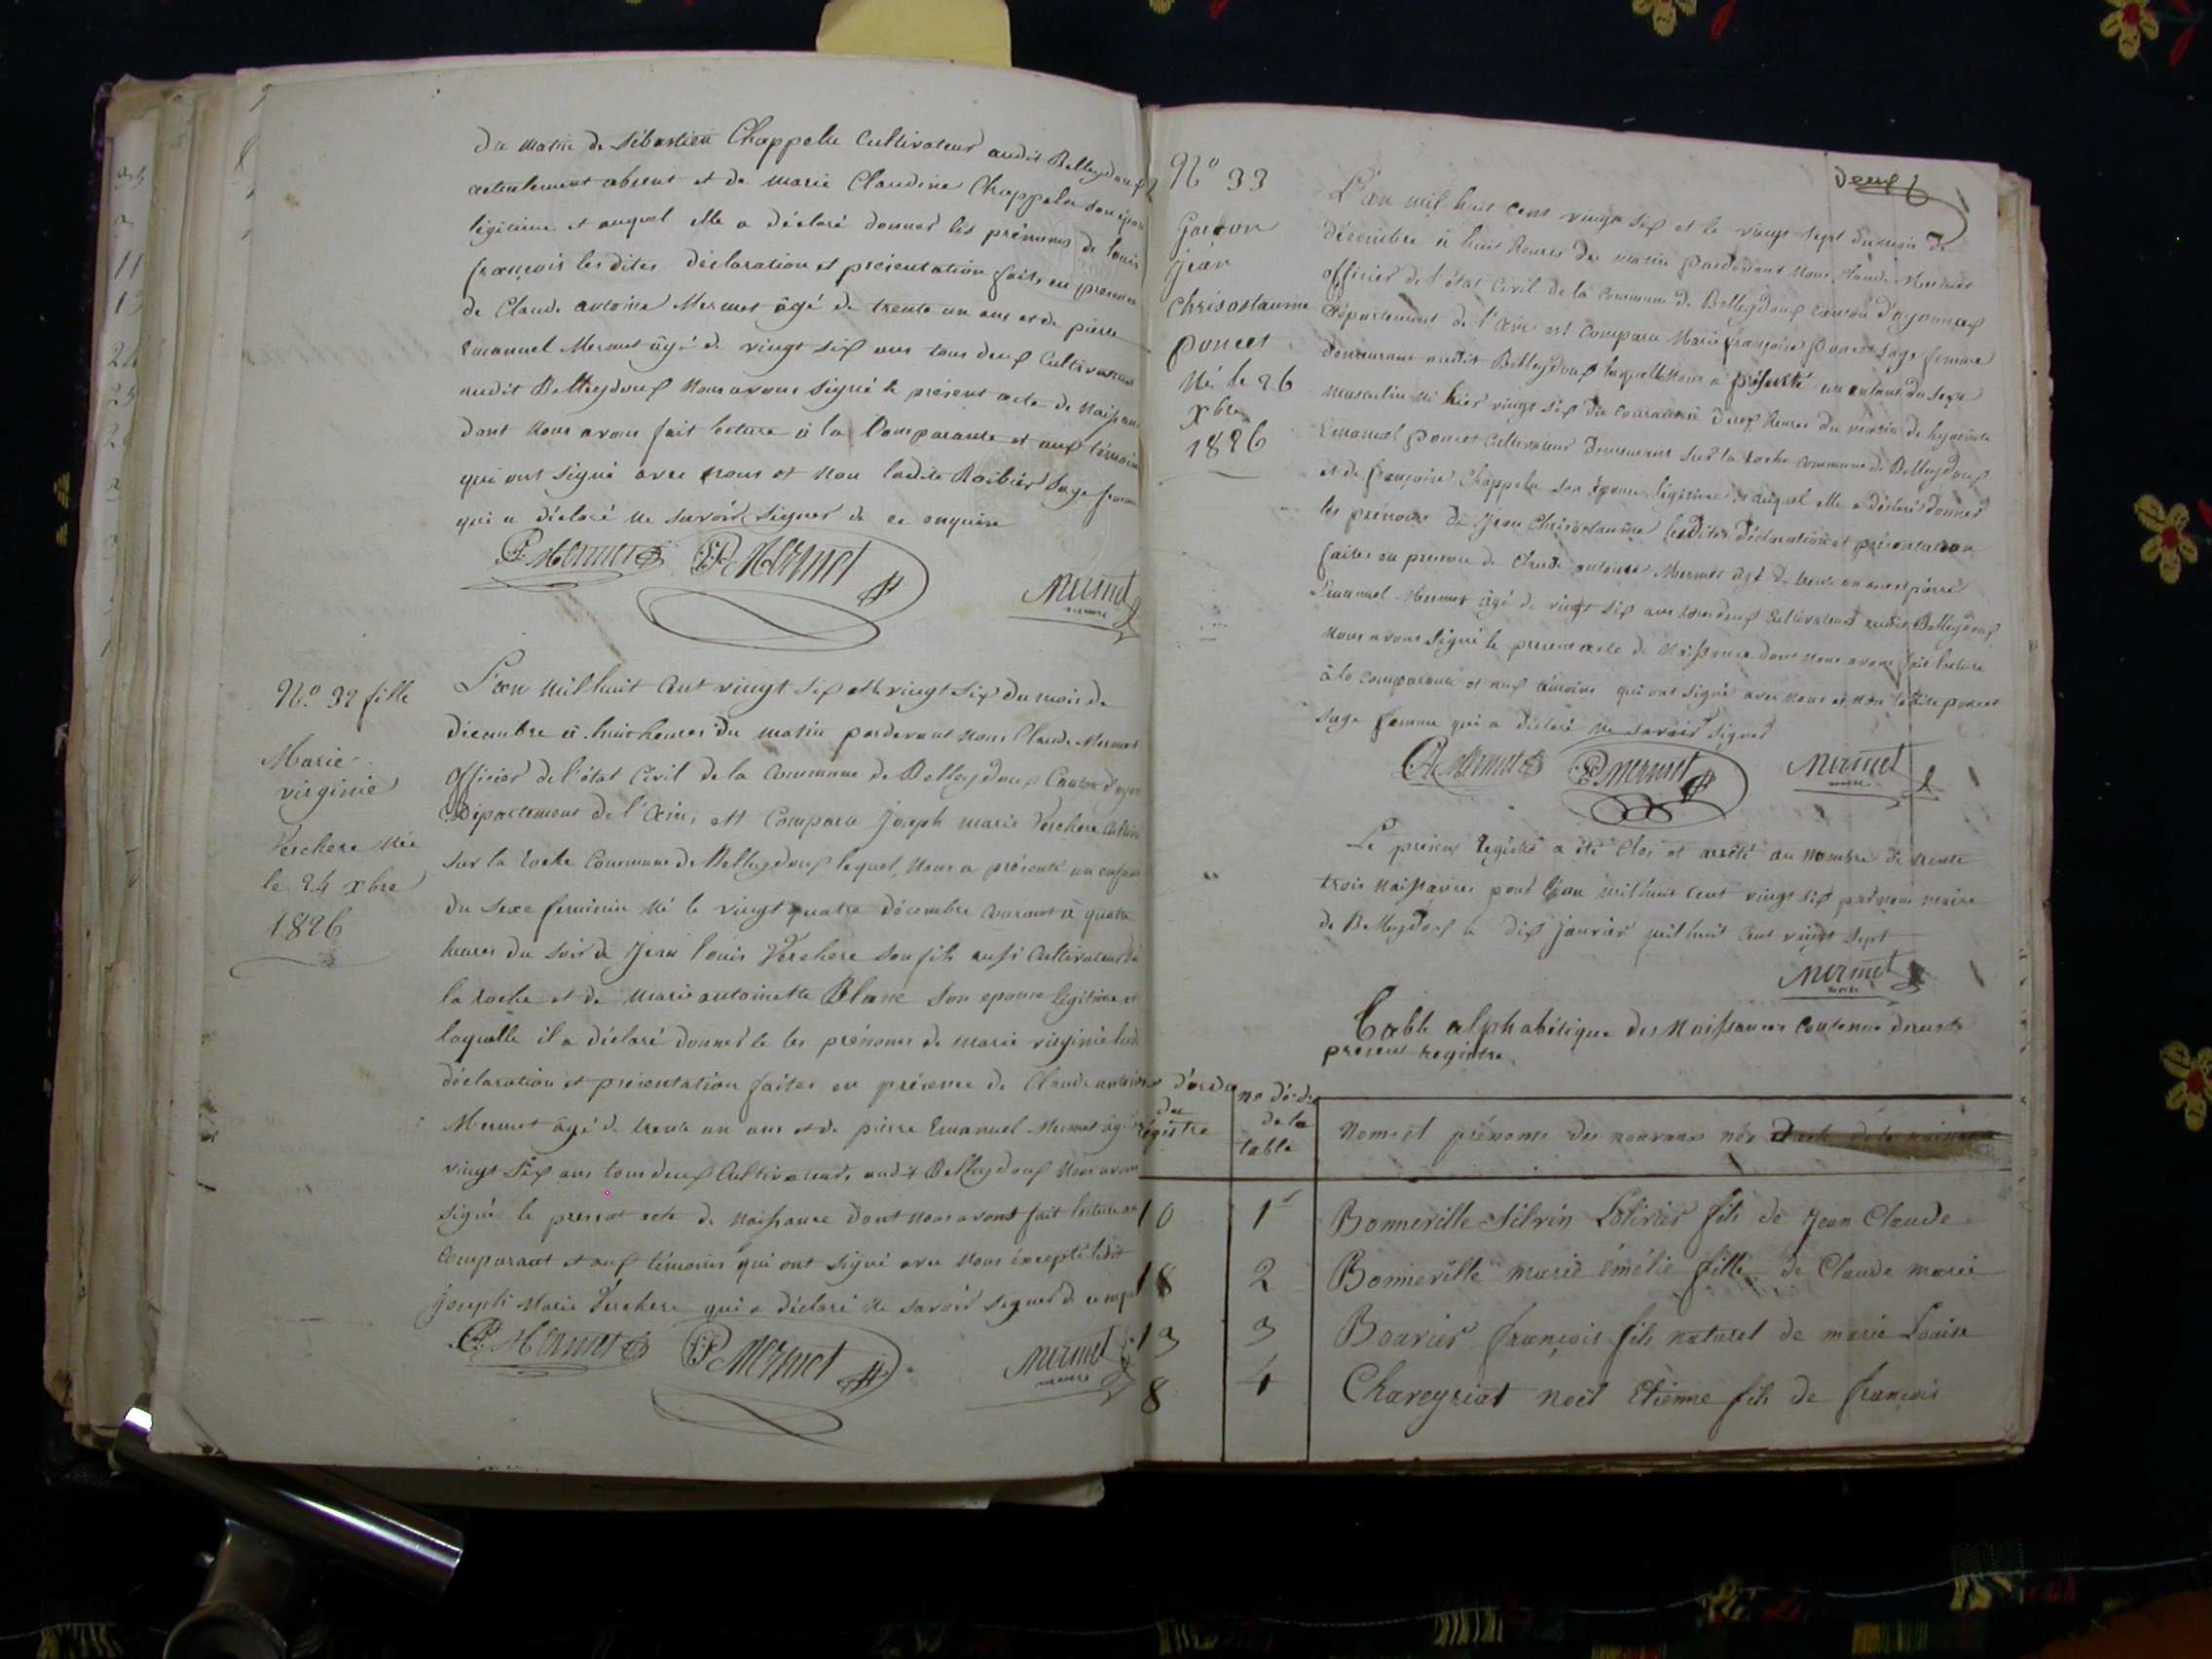 du matin de Sébastien Chappelu Cultivateur audit Belleydoux
actuelement absent et de marie Claudine Chappelu son épou
légitime et auquel elle a déclaré donner les prénoms de louis
françois les dites déclaration et présentation faits en presence
de Claude antoine Mermet âgé de trente un ans et de pierre
Emanuel Mermet âgé de vingt six ans tous deux Cultivateurs
audit Belleydoux Nous avons signé le présent acte de Naissance
dont Nous avons fait lecture à la Comparante et aux témoins
qui ont signé avec nous et non ladite Roibier Sage femme
qui a déclaré ne savoir signer de ce enquise
CA Mermet PE Mermet
Mermet
maire
N.o 32 fille
Marie
virginie
Verchere Née
le 24 xbre
1826
L'an Mil huit Cent vingt Six et le vingt Six du mois de
décembre à huit heures du matin pardevant Nous Claude Mermet
officier de l'état Civil de la Commune de Belleydoux Canton d'oyon
Département de l'Ain, est Comparu Joseph marie Verchere Cultiv
sur la roche Commune de Belleydoux lequel Nous a présenté un enfant
du Sexe feminin Né le vingt quatre décembre Courant à quatre
heures du soir de Jean louis Verchere son fils aussi Cultivateur
la roche et de Marie antoinette Blanc Son epouse légitime et
laquelle il a déclaré donner le les prénoms de Marie virginie
déclaration et présentation faites en présence de Claude antoine
Mermet âgé de trente un ans et de pierre Emanuel Mermet âgé
vingt Six ans tous deux Cultivateurs audit Belleydoux Nous avons
signé le present acte de Naissance dont nous avons fait lecture au
Comparant et aux témoins qui ont signé avec Nous éxcepté ledit
joseph Marie Verchere qui a déclaré ne savoir signer de
CA Mermet PE Mermet
Mermet
maire
deux
N.o 33
Garcon
jean
Chrisostaume
poncet
Né le 26
xbre
1826
L'an mil huit cent vingt six et le vingt sept du mois de
décembre à huit heures du matin pardevant nous Claude Mermet
officier de l'état Civil de la Commune de Belleydoux Canton d'oyonnax
Département de l'Ain est Comparu Marie françoise Poncet Sage femme
demeurant audit Belleydoux laquelle Nous a présenté un enfant du sexe
masculin né hier vingt six du Courant à deux heures du matin de hyacinte
Emanuel poncet Cultivateur demeurant sur la roche Commune de Belleydoux
et de françoise Chappelu son épouse légitime et auquel elle a déclaré donner
les prénoms de Jean Chrisostaume lesdites déclaration et présentation
faites en presence de Claude antoine Mermet âgé de trente un ans et pierre
Emanuel Mermet âgé de vingt six ans tous deux Cultivateurs audit Belleydoux
Nous avons signé le present acte de Naissance dont nous avons fait lecture
à la Comparante et aux témoins qui ont signé avec nous et non ladite poncet
sage femme qui a déclaré ne savoir signer
CA Mermet PE Mermet Mermet
maire
Le présent régistre a été Clos et arrêté au nombre de trente
trois Naissances pour l'an mil huit cent vingt six par nous maire
de Belleydoux le dix janvier mil huit cent vingt sept
Mermet
maire
Table alphabétique des Naissances Contenue dans le
présent registre
d'ordre
du
régistre
no d'ordre
de la
table
Noms et prénoms des nouveaux nés
10 1 Bonneville Silvin Lolivier fils de Jean Claude
18 2 Bonneville marie émélie fille de Claude marie
13 3 Bouvier françois fils naturel de marie Louise
8 4 Chaveyriat noël Etienne fils de françois